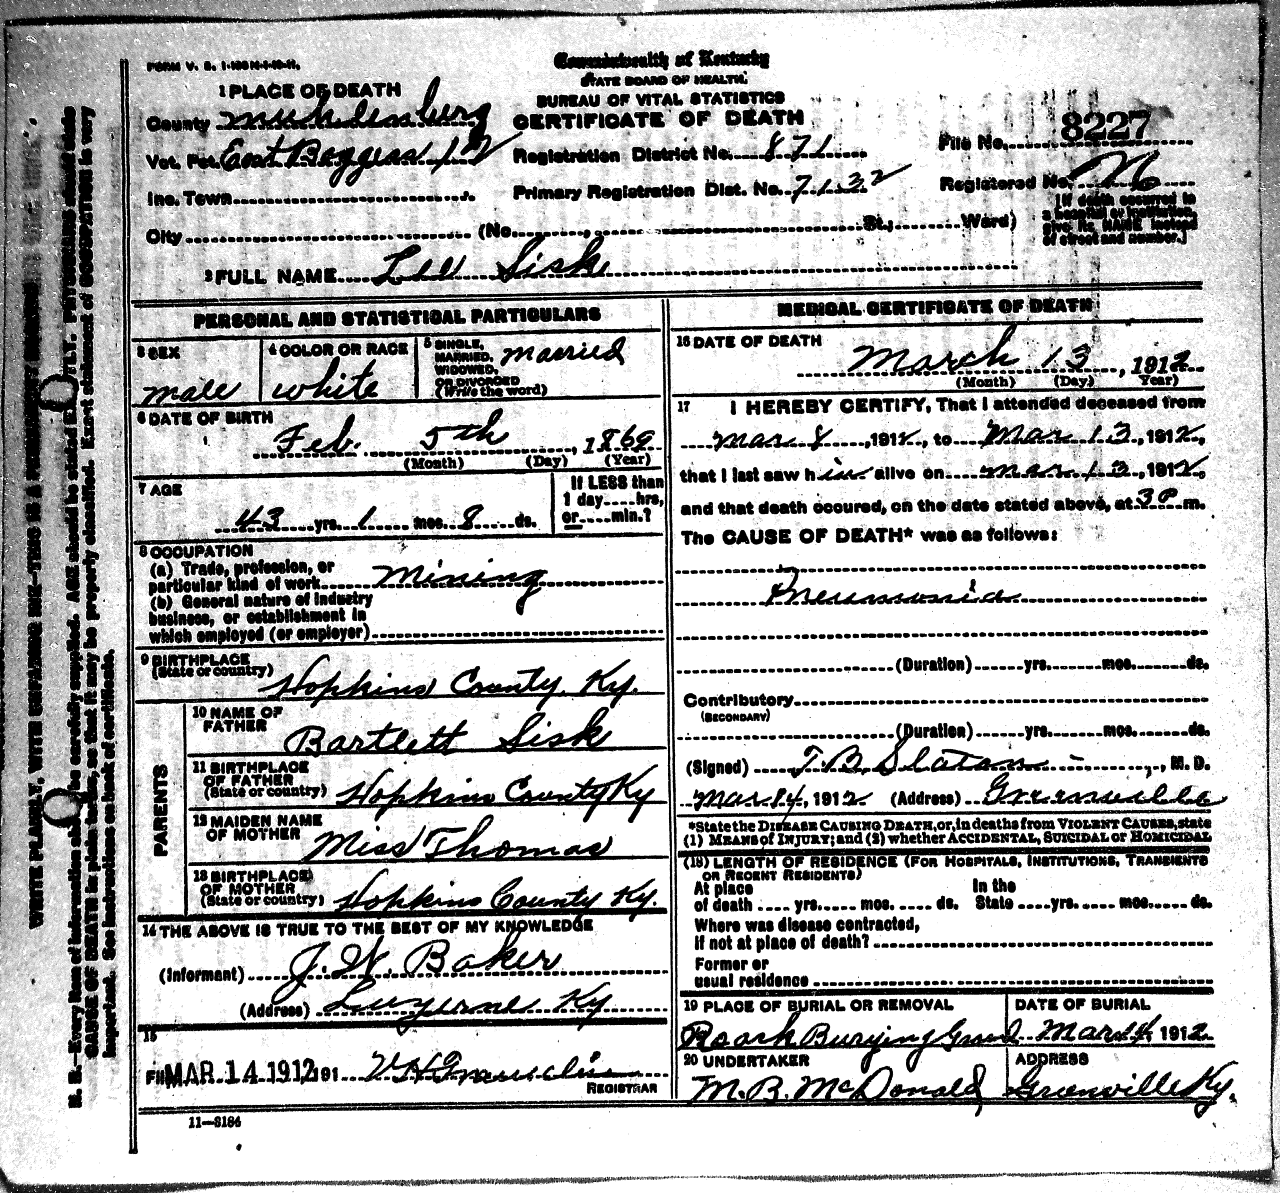 FORM V. S. 1-
Commonwealth of Kentucky
STATE BOARD OF HEALTH.
BUREAU OF VITAL STATISTICS
CERTIFICATE OF DEATH
1 PLACE OF DEATH
County Muhlenburg
Vot. Pct. East Boggess
Registration District No. 871
File No. 8227
Inc. Town
Primary Registration Dist. No. 7132
Registered No.
City (No. St., Ward)
[If death occurred in
a hospital or institution,
give its NAME instead
of street and number.]
2 FULL NAME Lee Sisk
PERSONAL AND STATISTICAL PARTICULARS
3 SEX
male
4 COLOR OR RACE
white
5 SINGLE,
MARRIED,
WIDOWED,
OR DIVORCED
(Write the word)
Married
6 DATE OF BIRTH
Feb. 5th, 1869
(Month) (Day) (Year)
7 AGE
43 yrs. 1 mos. 8 ds.
If LESS than
1 day....hrs.
or.....min.?
8 OCCUPATION
(a) Trade, profession, or
particular kind of work Mining
(b) General nature of industry
business, or establishment in
which employed (or employer)
9 BIRTHPLACE
(State or country) Hopkins County. Ky.
PARENTS
10 NAME OF
FATHER Bartlett Sisk
11 BIRTHPLACE
OF FATHER
(State or country) Hopkins County Ky
12 MAIDEN NAME
OF MOTHER Miss Thomas
13 BIRTHPLACE
OF MOTHER
(State or country) Hopkins County Ky.
14 THE ABOVE IS TRUE TO THE BEST OF MY KNOWLEDGE
(Informant) J. W. Baker
(Address) Luzerne Ky
15
Filed MAR 14 1912 191
REGISTRAR
11—3184
MEDICAL CERTIFICATE OF DEATH
16 DATE OF DEATH
March 13, 1912
(Month) (Day) Year)
17 I HEREBY CERTIFY, That I attended deceased from
Mar 8, 1912, to Mar 13, 1912,
that I last saw him alive on Mar 13, 1912,
and that death occured, on the date stated above, at 3 P. m.
The CAUSE OF DEATH* was as follows:
Pneumonia
(Duration) yrs. mos. ds.
Contributory
(SECONDARY)
(Duration) yrs. mos. ds.
(Signed) T. B. Slaton, M. D.
Mar 14, 1912 (Address) Greenville
*State the DISEASE CAUSING DEATH, or, in deaths from VIOLENT CAUSES, state
(1) MEANS of INJURY; and (2) whether ACCIDENTAL, SUICIDAL or HOMICIDAL
(18) LENGTH OF RESIDENCE (FOR HOSPITALS, INSTITUTIONS, TRANSIENTS
OR RECENT RESIDENTS)
At place
of death .... yrs. mos. ds.
In the
State yrs. mos. ds.
Where was disease contracted,
if not at place of death?
Former or
usual residence
19 PLACE OF BURIAL OR REMOVAL
Roark Burying Grund
DATE OF BURIAL
Mar 14, 1912
20 UNDERTAKER
M. B. McDonald
ADDRESS
Greenville Ky.
WRITE PLAINLY, WITH UNFADING INK—THIS IS A PERMANENT RECORD
N. B.—Every item of information should be carefully supplied. AGE should be stated EXACTLY. PHYSICIANS should state
CAUSE OF DEATH in plain terms, so that it may be properly classified. Exact statement of OCCUPATION is very
important. See instructions on back of certificate.